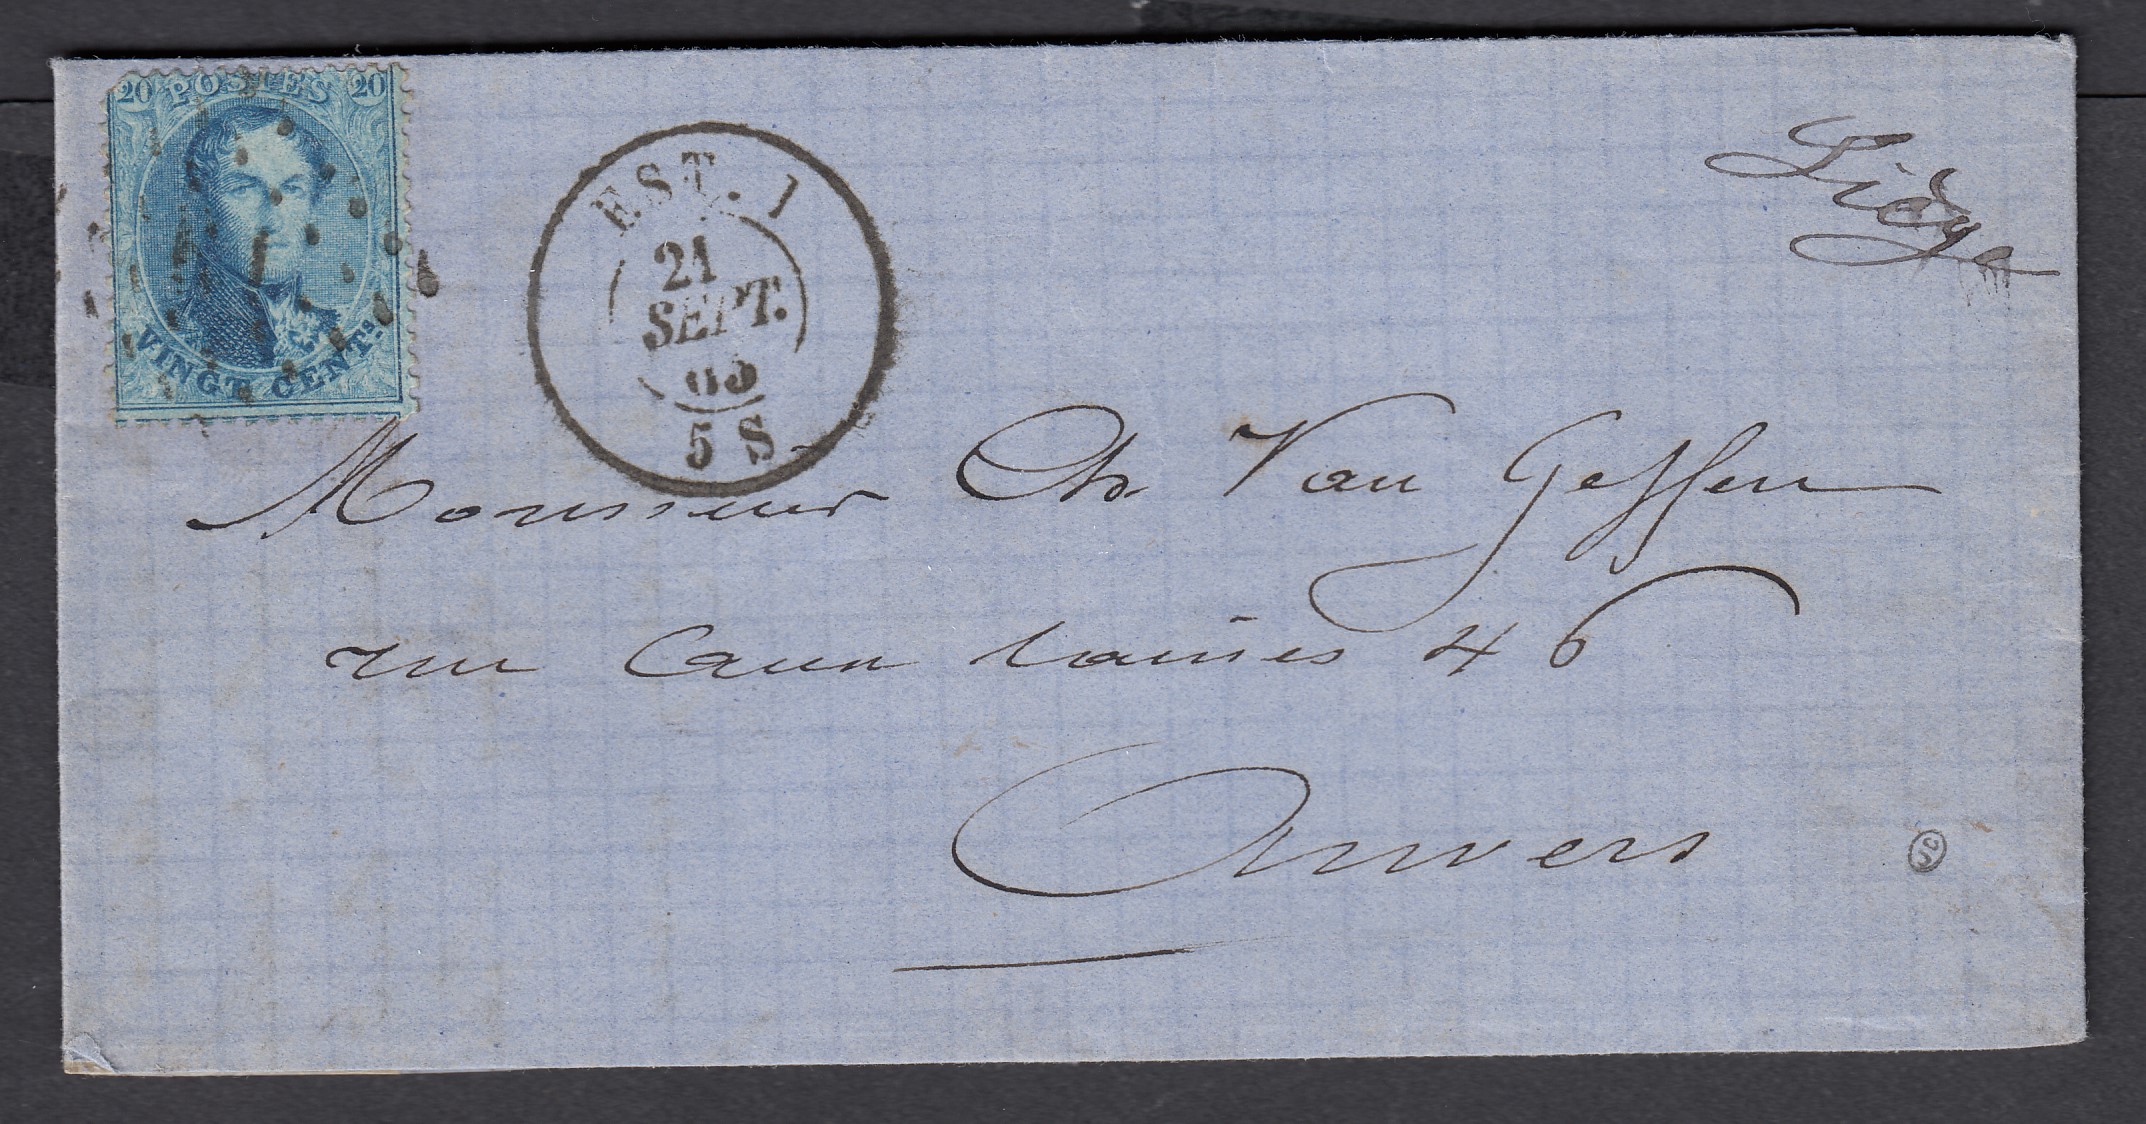 20 POSTES 20
VINGT CENTS
EST. 1
21
SEPT.
5 S
Liége
Monsieur Ch Van Geffen
rue aux laines 46
Anvers